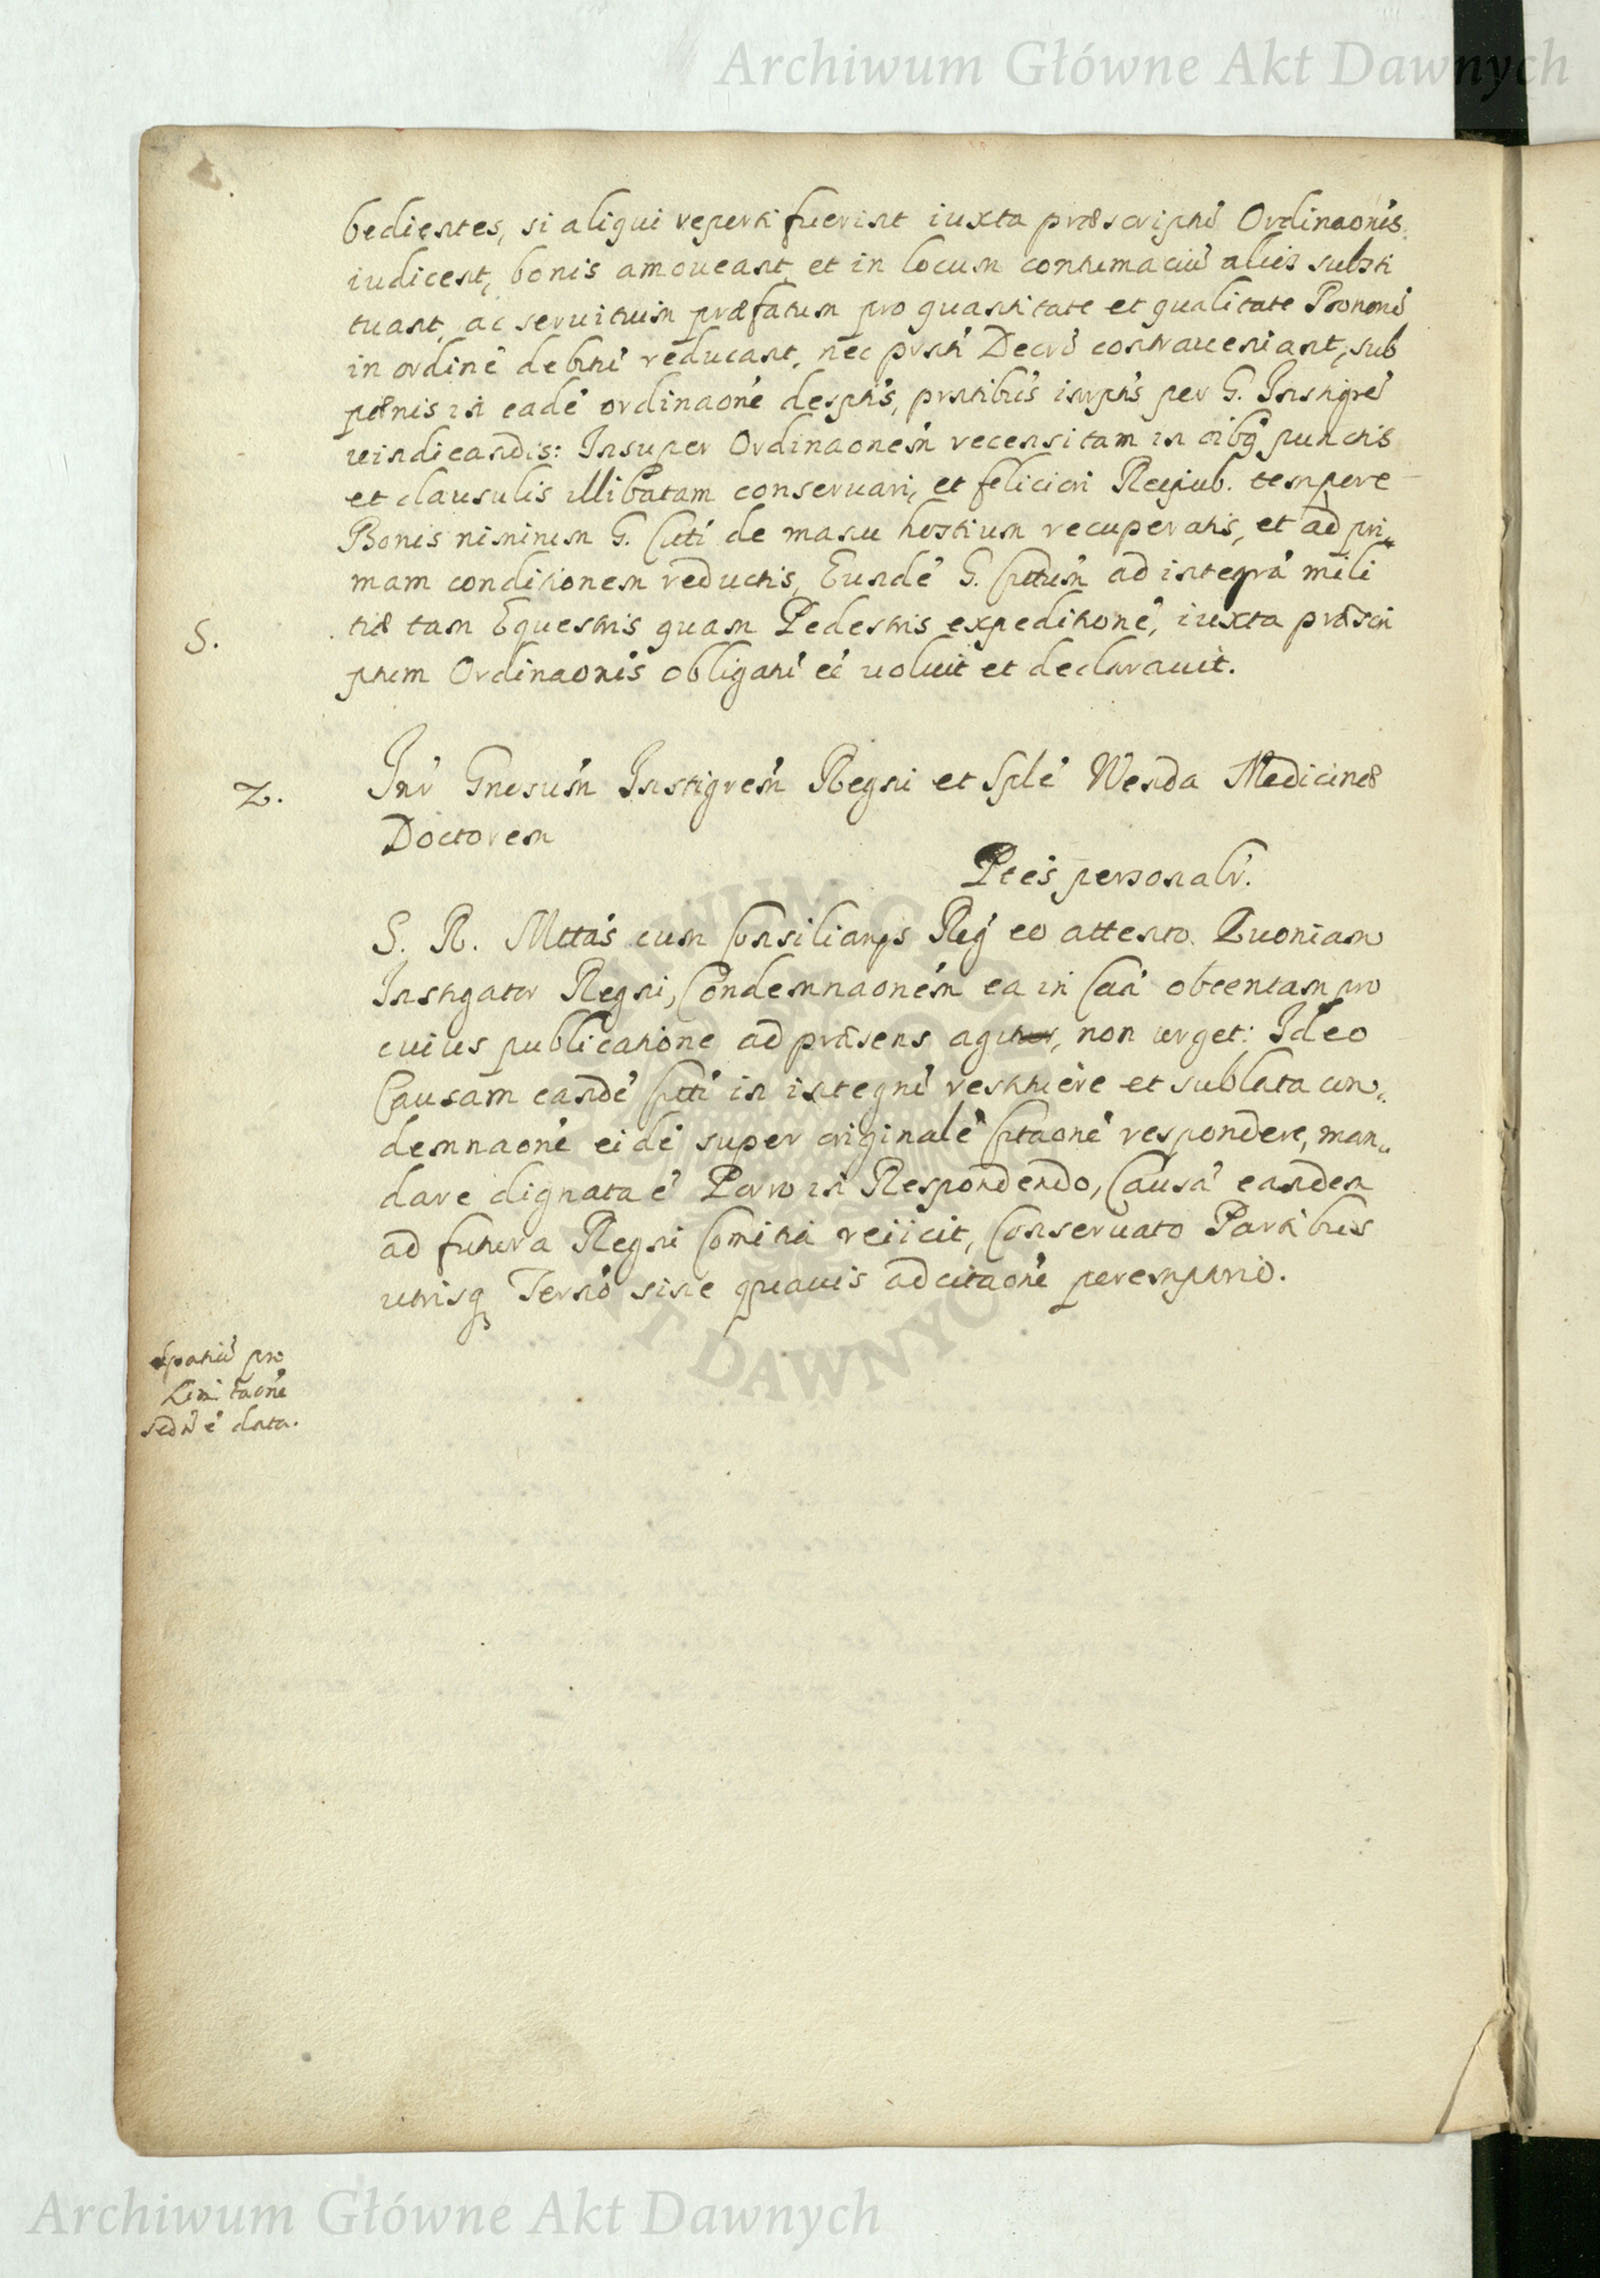 Archiwum Główne Akt Dawnych
bedientes, si aliqui reperti fuerint iuxta præscriptũ Ordinaonis
iudicent, bonis amoueant, et in locum contumaciũ alios substi
tuant, ac seruitium præfatum pro quantitate et qualitate Bonorũ
in ordinẽ debitũ reducant, nec pñti Decrõ contraueniant, sub
pænis in eadẽ ordinaonẽ desptis, pñtibus insptis per G. Instigrẽ
uindicandis: Insuper Ordinaonem̃ recensitam in oibq punctis
et clausulis illibatam conseruari, et feliciori Reipub. tempore
Bonis nimirum G. Citti de manu hostium recuperatis, et ad pri„
mam conditionem reductis, Eundẽ G. Cittum̃ ad integrã mili
tiæ tam Equestris quam Pedestris expeditionẽ, iuxta præscri
S.
ptum Ordinaonis obligatũ eẽ voluit et declarauit.
2.
Intr Gnrsum̃ Instigrem̃ Regni et Splẽ Wenda Medicinæ
Doctorem
Ptes personalr.
S. R. Mttas cum Consiliarys Regÿ eo attento. Quoniam
Instigator Regni, Condemnaonem̃ ea in Caã obtentam pro
cuius publicatione ad præsens agitur, non urget: Ideo
Causam eandẽ Citti in integrũ restituere et sublata con„
demnaonẽ eidẽ super originalẽ Citaonẽ respondere, man„
dare dignata ẽ Porro in Respondendo, Causã eandem
ad futura Regni Comitia reiicit, Conseruato Partibus
utrisq Terño sine quauis adcitaonẽ peremptorio.
spatiũ pro
Limitaonẽ
sed ñ ẽ data.
ARCHIWUM GŁÓWNE AKT DAWNYCH
Archiwum Główne Akt Dawnych